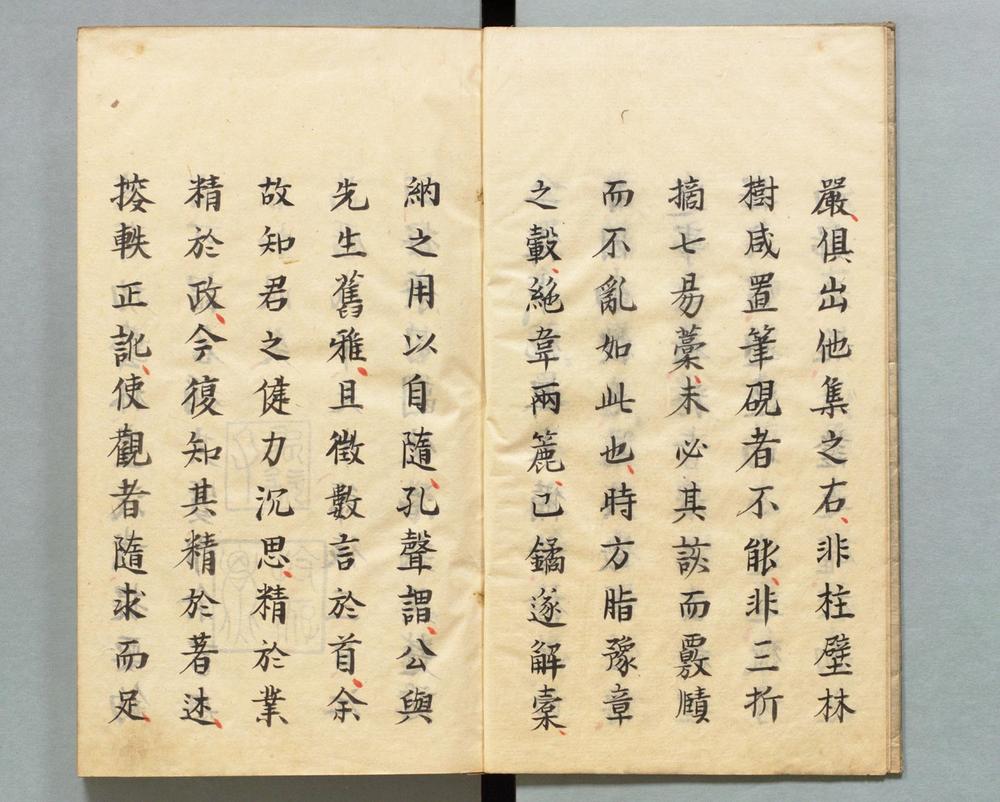 嚴俱出他集之右非柱壁林
樹咸置筆硯者不能非三折
摘七易藁未必其該而覈賾
而不亂如此也時方脂豫章
之轂絕韋兩簏已鐍遂解橐
納之用以自隨孔聲謂公與
先生舊雅且徵數言於首余
故知君之健力沉思精於業
精於政今復知其精於著述
接軼正訛使觀者隨求而足